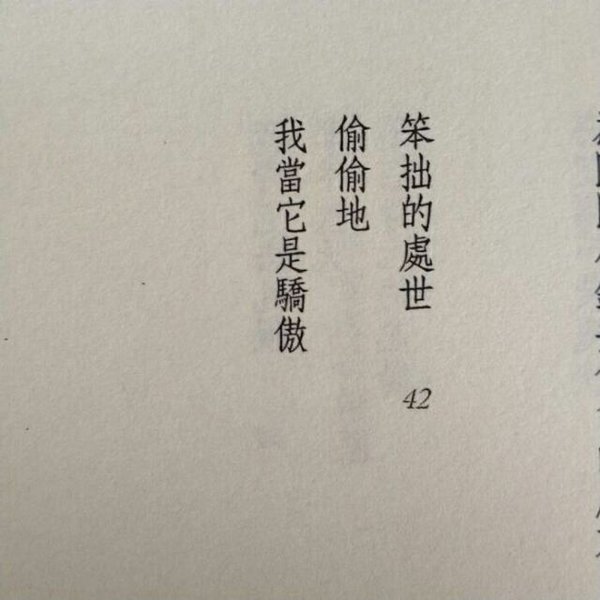 笨拙的處世 42
偷偷地
我當它是驕傲